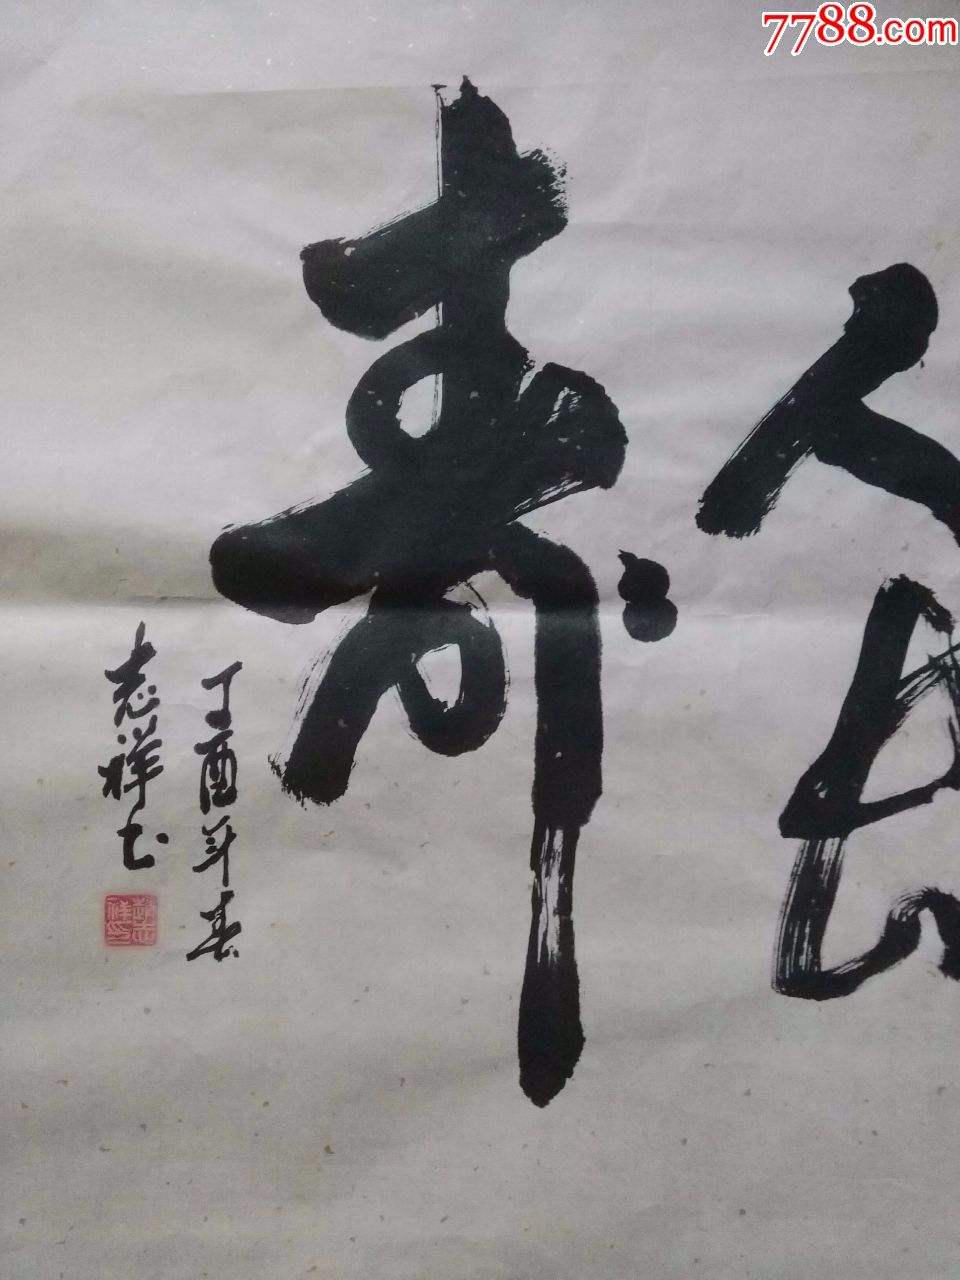 7788.com
寿
丁酉年春
志祥书